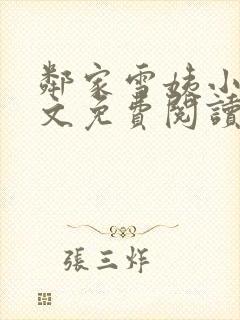 鄰家雪姨小
文免費閱讀
張三炸